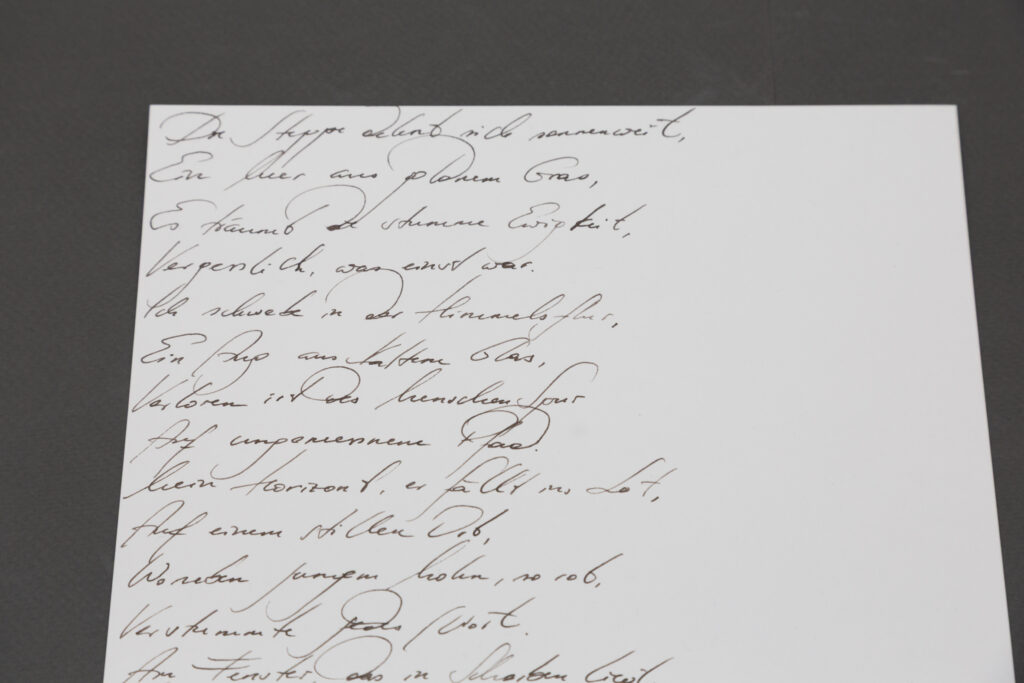 Die Steppe dehnt sich sonnenweit,
Ein Meer aus goldnem Gras,
Es träumt die stumme Ewigkeit,
Vergesslich, was einst war.
Ich schwebe in der Himmelsflur,
Ein Aug aus kaltem Glas,
Verloren ist des Menschen Spur
Auf ungemessnem Pfad.
Mein Horizont, er fällt ins Lot,
Auf einem stillen
jungem Mohn, so rot,
Verstummte jedes Wort.
Am Fenster, das in Scherben liegt